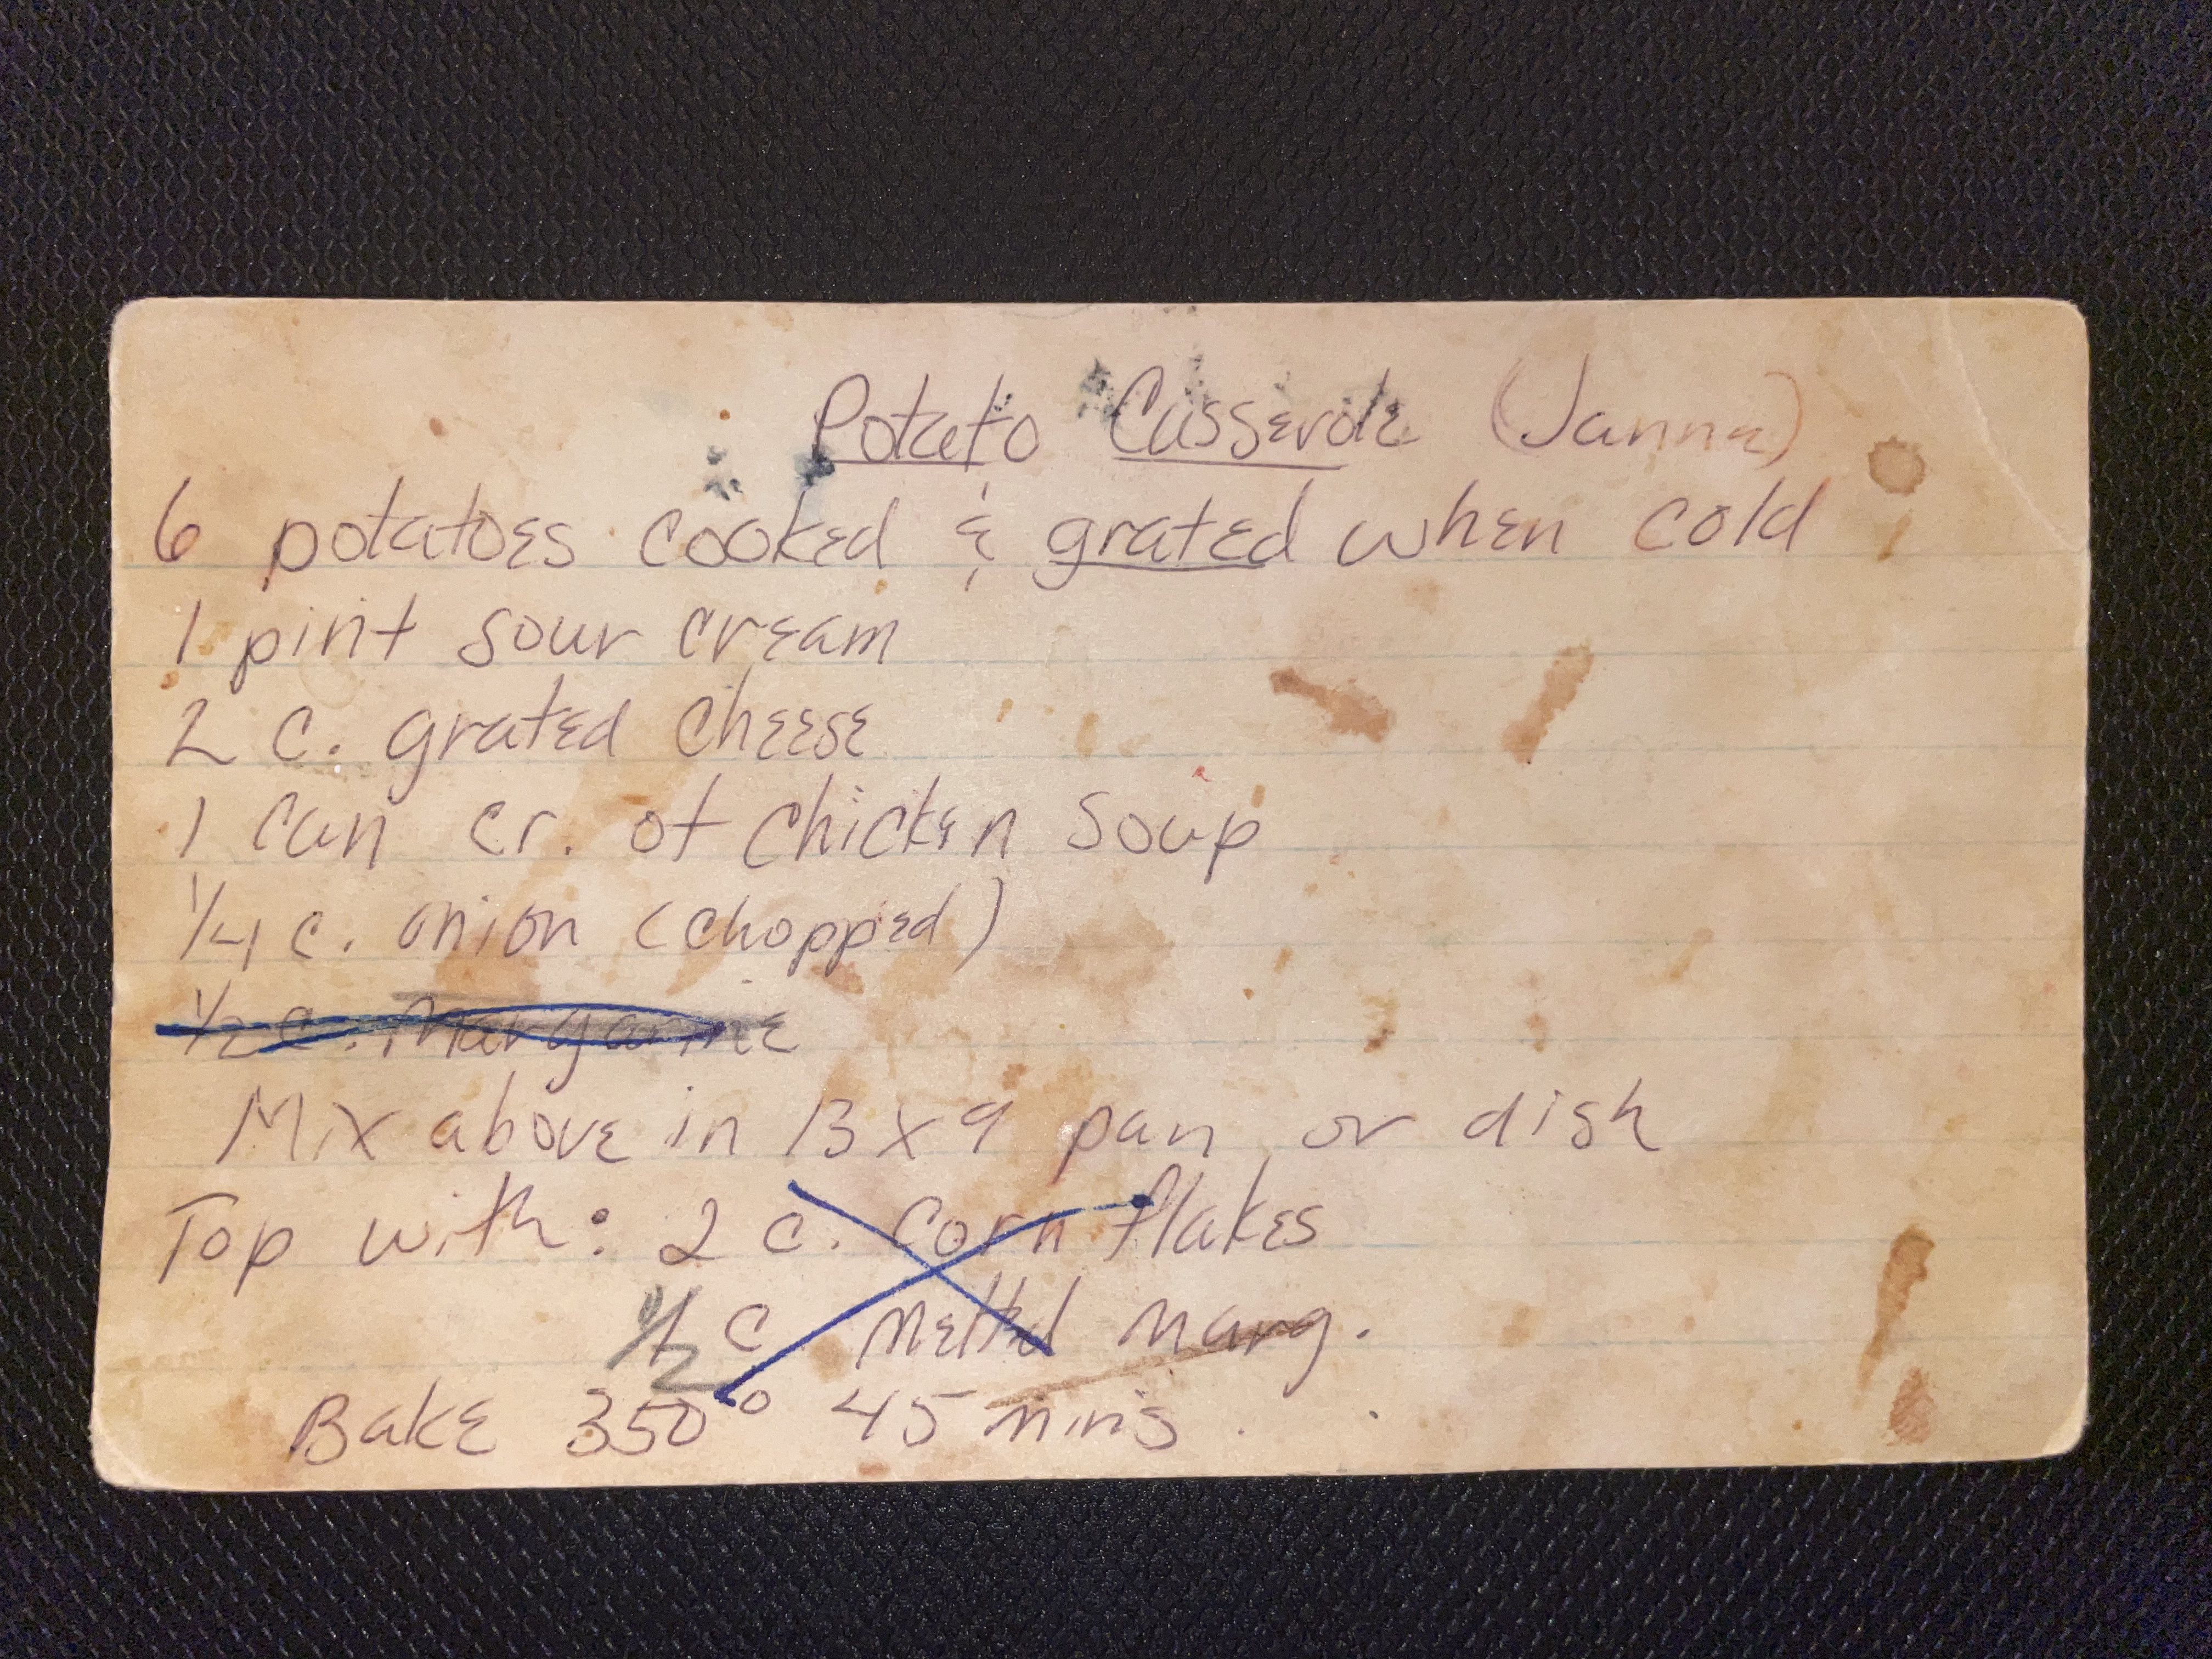 Potato Casserole (Janna)
6 potatoes cooked & grated when cold
1 pint sour cream
2 c. grated cheese
1 can cr. of chicken soup
1/4 c. onion (chopped)
1/2 c. margarine
Mix above in 13 x 9 pan or dish
Top with: 2 c. corn flakes
1/2 c melted marg.
Bake 350° 45 mins.